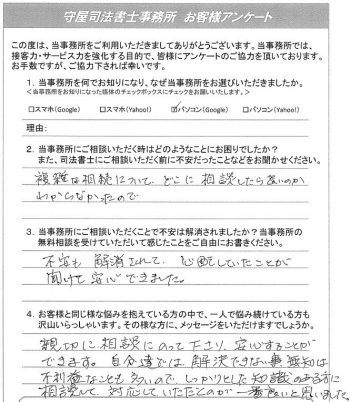 守屋司法書士事務所 お客様アンケート
この度は、当事務所をご利用いただきましてありがとうございます。当事務所では、
接客力・サービス力を強化する目的で、皆様にアンケートのご協力を頂いております。
お手数ですが、ご協力下されば幸いです。
1. 当事務所を何でお知りになり、なぜ当事務所をお選びいただきましたか。
<当事務所をお知りになった媒体のチェックボックスにチェックをお願いいたします。>
□スマホ(Google) □スマホ(Yahoo!) ☑パソコン(Google) □パソコン(Yahoo!)
理由:
2. 当事務所にご相談いただく時はどのようなことにお困りでしたか？
また、司法書士にご相談いただく前に不安だったことなどをお聞かせください。
複雑な相続について、どこに相談したら良いのか
わからなかったので
3. 当事務所にご相談いただくことで不安は解消されましたか？当事務所の
無料相談を受けていただいて感じたことをご自由にお書きください。
不安も解消されて、心配していたことが
聞けて安心できました。
4. お客様と同じ様な悩みを抱えている方の中で、一人で悩み続けている方も
沢山いらっしゃいます。その様な方に、メッセージをいただけますでしょうか。
親切に相談にのって下さり、安心することが
できます。自分達では解決できない事 無知は
不利益なことも多いので、しっかりとした知識のある方に
相談して、対応していただくのが一番良いと思いました。